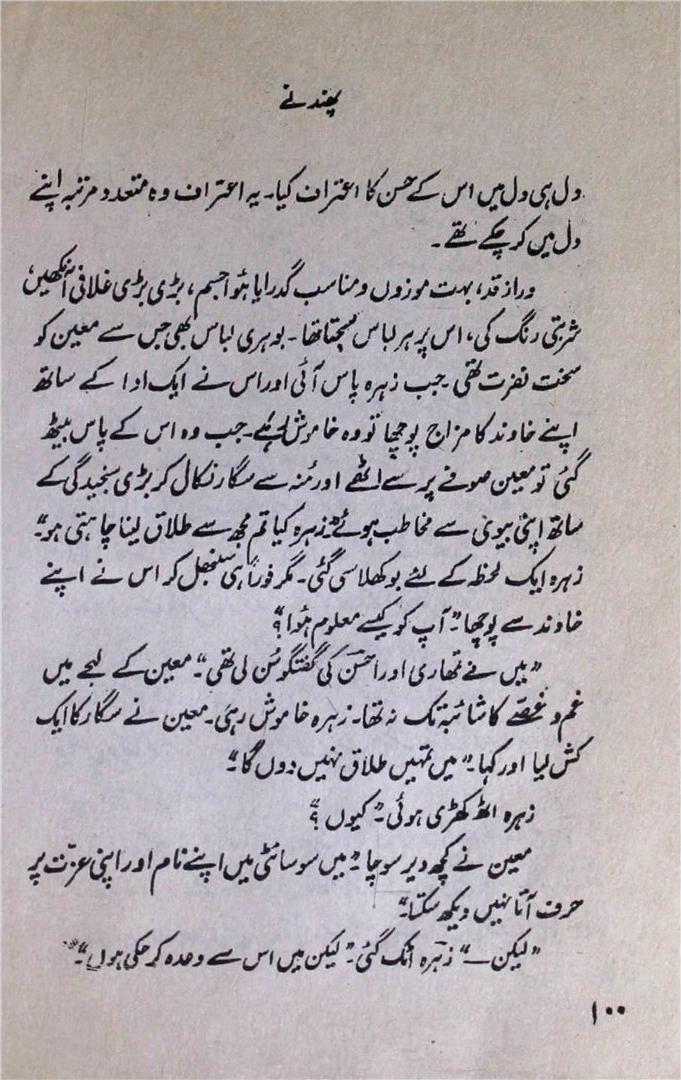 پھندنے
دل ہی دل میں اس کے حسن کا اعتراف کیا۔ یہ اعتراف وہ متعدد مرتبہ اپنے
دل میں کر چکے تھے۔
دراز قد، بہت موزوں و مناسب گدرایا ہوا جسم، بڑی بڑی غلافی آنکھیں
شربتی رنگ کی، اس پر ہر لباس سجتا تھا۔ بوہری لباس بھی جس سے معین کو
سخت نفرت تھی۔ جب زہرہ پاس آئی اور اس نے ایک ادا کے ساتھ
اپنے خاوند کا مزاج پوچھا تو وہ خاموش رہے۔ جب وہ اس کے پاس بیٹھ
گئی تو معین صوفے پر سے اٹھے اور منہ سے سگار نکال کر بڑی سنجیدگی کے
ساتھ اپنی بیوی سے مخاطب ہوئے "زہرہ کیا تم مجھ سے طلاق لینا چاہتی ہو۔"
زہرہ ایک لحظہ کے لئے بوکھلا سی گئی۔ مگر فوراً ہی سنبھل کر اس نے اپنے
خاوند سے پوچھا۔ "آپ کو کیسے معلوم ہوا؟"
"میں نے تمھاری اور احسن کی گفتگو سن لی تھی" معین کے لہجے میں
غم و غصّے کا شائبہ تک نہ تھا۔ زہرہ خاموش رہی۔ معین نے سگار کا ایک
کش لیا اور کہا۔ "میں تمہیں طلاق نہیں دوں گا۔"
زہرہ اٹھ کھڑی ہوئی۔ "کیوں؟"
معین نے کچھ دیر سوچا۔ "میں سوسائٹی میں اپنے نام اور اپنی عزّت پر
حرف آتا نہیں دیکھ سکتا۔"
"لیکن—" زہرہ اٹک گئی۔ "لیکن میں اس سے وعدہ کر چکی ہوں۔"
۱۰۰